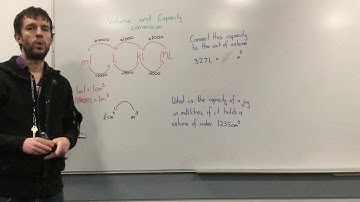 Volume and Capacity
conversion
x1000 x1000 x1000
L
÷1000 ÷1000 ÷1000
1ml = 1cm³
1000L = 1m³
dcm³ m³
Convert this capacity
to the unit of volume
327L = m³
What is the capacity of a jug
in millitres if it holds a
volume of water 1235cm³